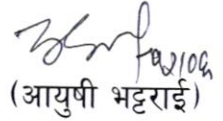 (आयुषी भट्टराई)